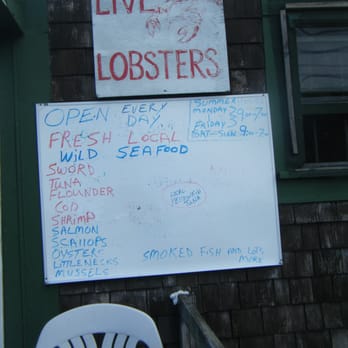 LIVE
LOBSTERS
OPEN EVERY
DAY...
SUMMER
MONDAY
FRIDAY
SAT-SUN
FRESH LOCAL
WILD SEAFOOD
SWORD
TUNA
FLOUNDER
COD
SHRIMP
SALMON
SCALLOPS
OYSTERS
LITTLENECKS
MUSSELS
LOCAL
YELLOWFIN
TUNA
SMOKED FISH AND LOTS
MORE